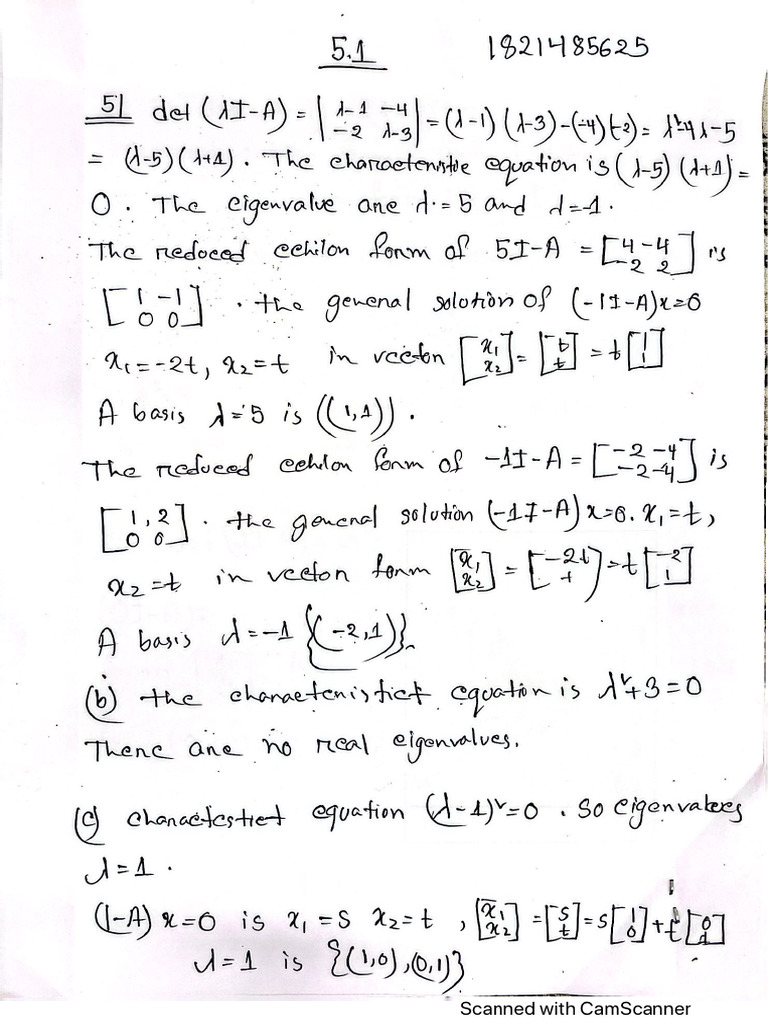 5.1 1821485625
5| det (λI-A) = |λ-1 -4 -2 λ-3| = (λ-1) (λ-3)-(-4)(-2) = λ²-4λ-5
= (λ-5) (λ+1). The characteristic equation is (λ-5) (λ+1) =
0. The eigenvalue are λ = 5 and λ=-1.
The reduced echilon form of 5I-A = [4 -4 -2 2] is
[1 -1 0 0]. the general solution of (-1I-A)x=0
x₁=-2t, x₂=t in vector [x₁ x₂] = [t t] = t[1 1]
A basis λ=5 is ((1,1)).
The reduced echilon form of -1I-A = [-2 -4 -2 -4] is
[1, 2 0 0]. the general solution (-1I-A) x=0. x₁=t,
x₂=t in vector form [x₁ x₂] = [-2t t] = t[-2 1]
A basis λ=-1 {(-2,1)}.
(b) the characteristict equation is λ²+3=0
There are no real eigenvalues.
(c) charactestict equation (λ-1)²=0. So eigenvalues
λ=1.
(1-A) x=0 is x₁=s x₂=t, [x₁ x₂] = [s t] = s[1 0] + t[0 1]
λ=1 is {(1,0),(0,1)}
Scanned with CamScanner